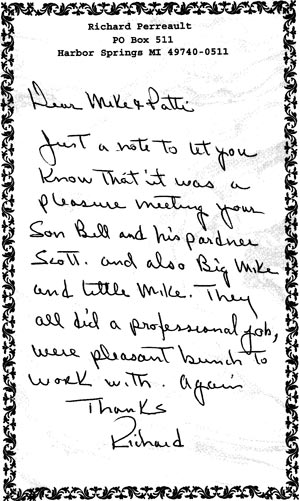 Richard Perreault
PO Box 511
Harbor Springs MI 49740-0511
Dear Mike & Patti
Just a note to let you
know that it was a
pleasure meeting your
Son Bill and his pardner
Scott. and also Big Mike
and little Mike. They
all did a professional job,
were pleasant bunch to
work with. Again
Thanks
Richard